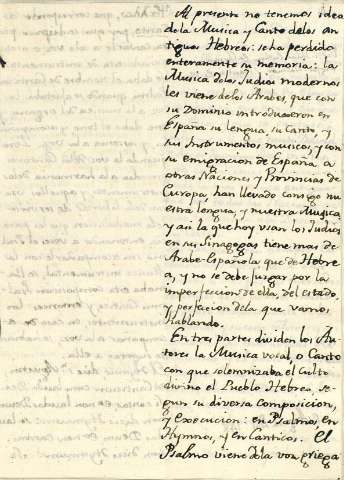 Al presente no tenemos idea
dela Musica y Canto delos an
tiguos Hebreos: se ha perdido
enteramente su memoria: la
Musica delos Judios modernos
les viene delos Arabes, que con
su Dominio introduxeron en
España su lengua, su Canto, y
sus Instrumentos musicos, y con
su emigracion de España a
otras Naciones y Provincias de
Europa, han llevado consigo nu
estra lengua, y nuestra Musica,
y asi la que hoy usan los Judios
en sus Sinagogas tiene mas de
Arabe-Española que de Hebre
a, y no se debe juzgar por la
imperfeccion de ella, del estado
y perfeccion dela que vamos
hablando.
En tres partes dividen los Au
tores la Musica vocal, o Canto
con que solemnizaba el Culto
divino el Pueblo Hebreo, se
gun su diversa composicion,
y execucion: en Psalmos, en
Hymnos, y en Canticos. El
Psalmo viene dela voz griega